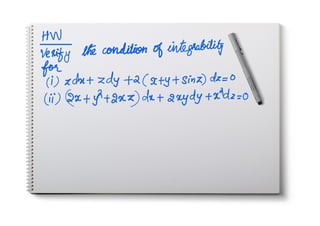 HW
Verify the condition of integrability
for
(i) zdx + zdy + 2(x+y+Sinz) dz=0
(ii) (2x+y²+2xz) dx + 2xydy +x²dz=0